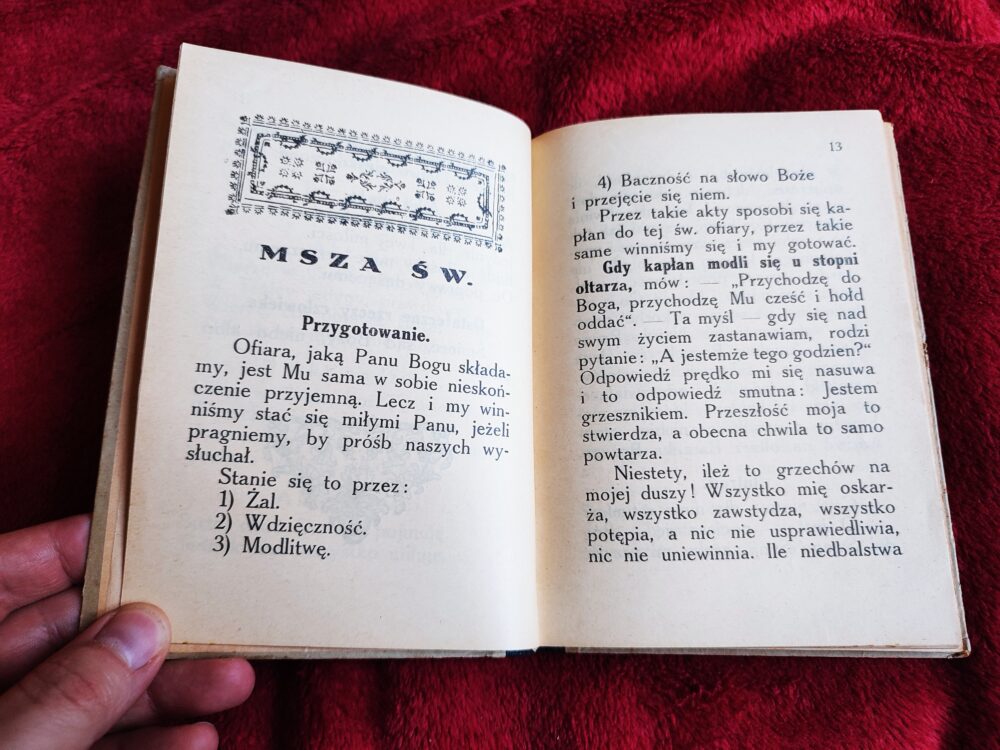 MSZA ŚW.
Przygotowanie.
Ofiara, jaką Panu Bogu składa-
my, jest Mu sama w sobie nieskoń-
czenie przyjemną. Lecz i my win-
niśmy stać się miłymi Panu, jeżeli
pragniemy, by próśb naszych wy-
słuchał.
Stanie się to przez:
1) Żal.
2) Wdzięczność.
3) Modlitwę.
13
4) Baczność na słowo Boże
i przejęcie się niem.
Przez takie akty sposobi się ka-
płan do tej św. ofiary, przez takie
same winniśmy się i my gotować.
Gdy kapłan modli się u stopni
ołtarza, mów: — „Przychodzę do
Boga, przychodzę Mu cześć i hołd
oddać“. — Ta myśl — gdy się nad
swym życiem zastanawiam, rodzi
pytanie: „A jestemże tego godzien?“
Odpowiedź prędko mi się nasuwa
i to odpowiedź smutna: Jestem
grzesznikiem. Przeszłość moja to
stwierdza, a obecna chwila to samo
powtarza.
Niestety, ileż to grzechów na
mojej duszy! Wszystko mię oskar-
ża, wszystko zawstydza, wszystko
potępia, a nic nie usprawiedliwia,
nic nie uniewinnia. Ile niedbalstwa